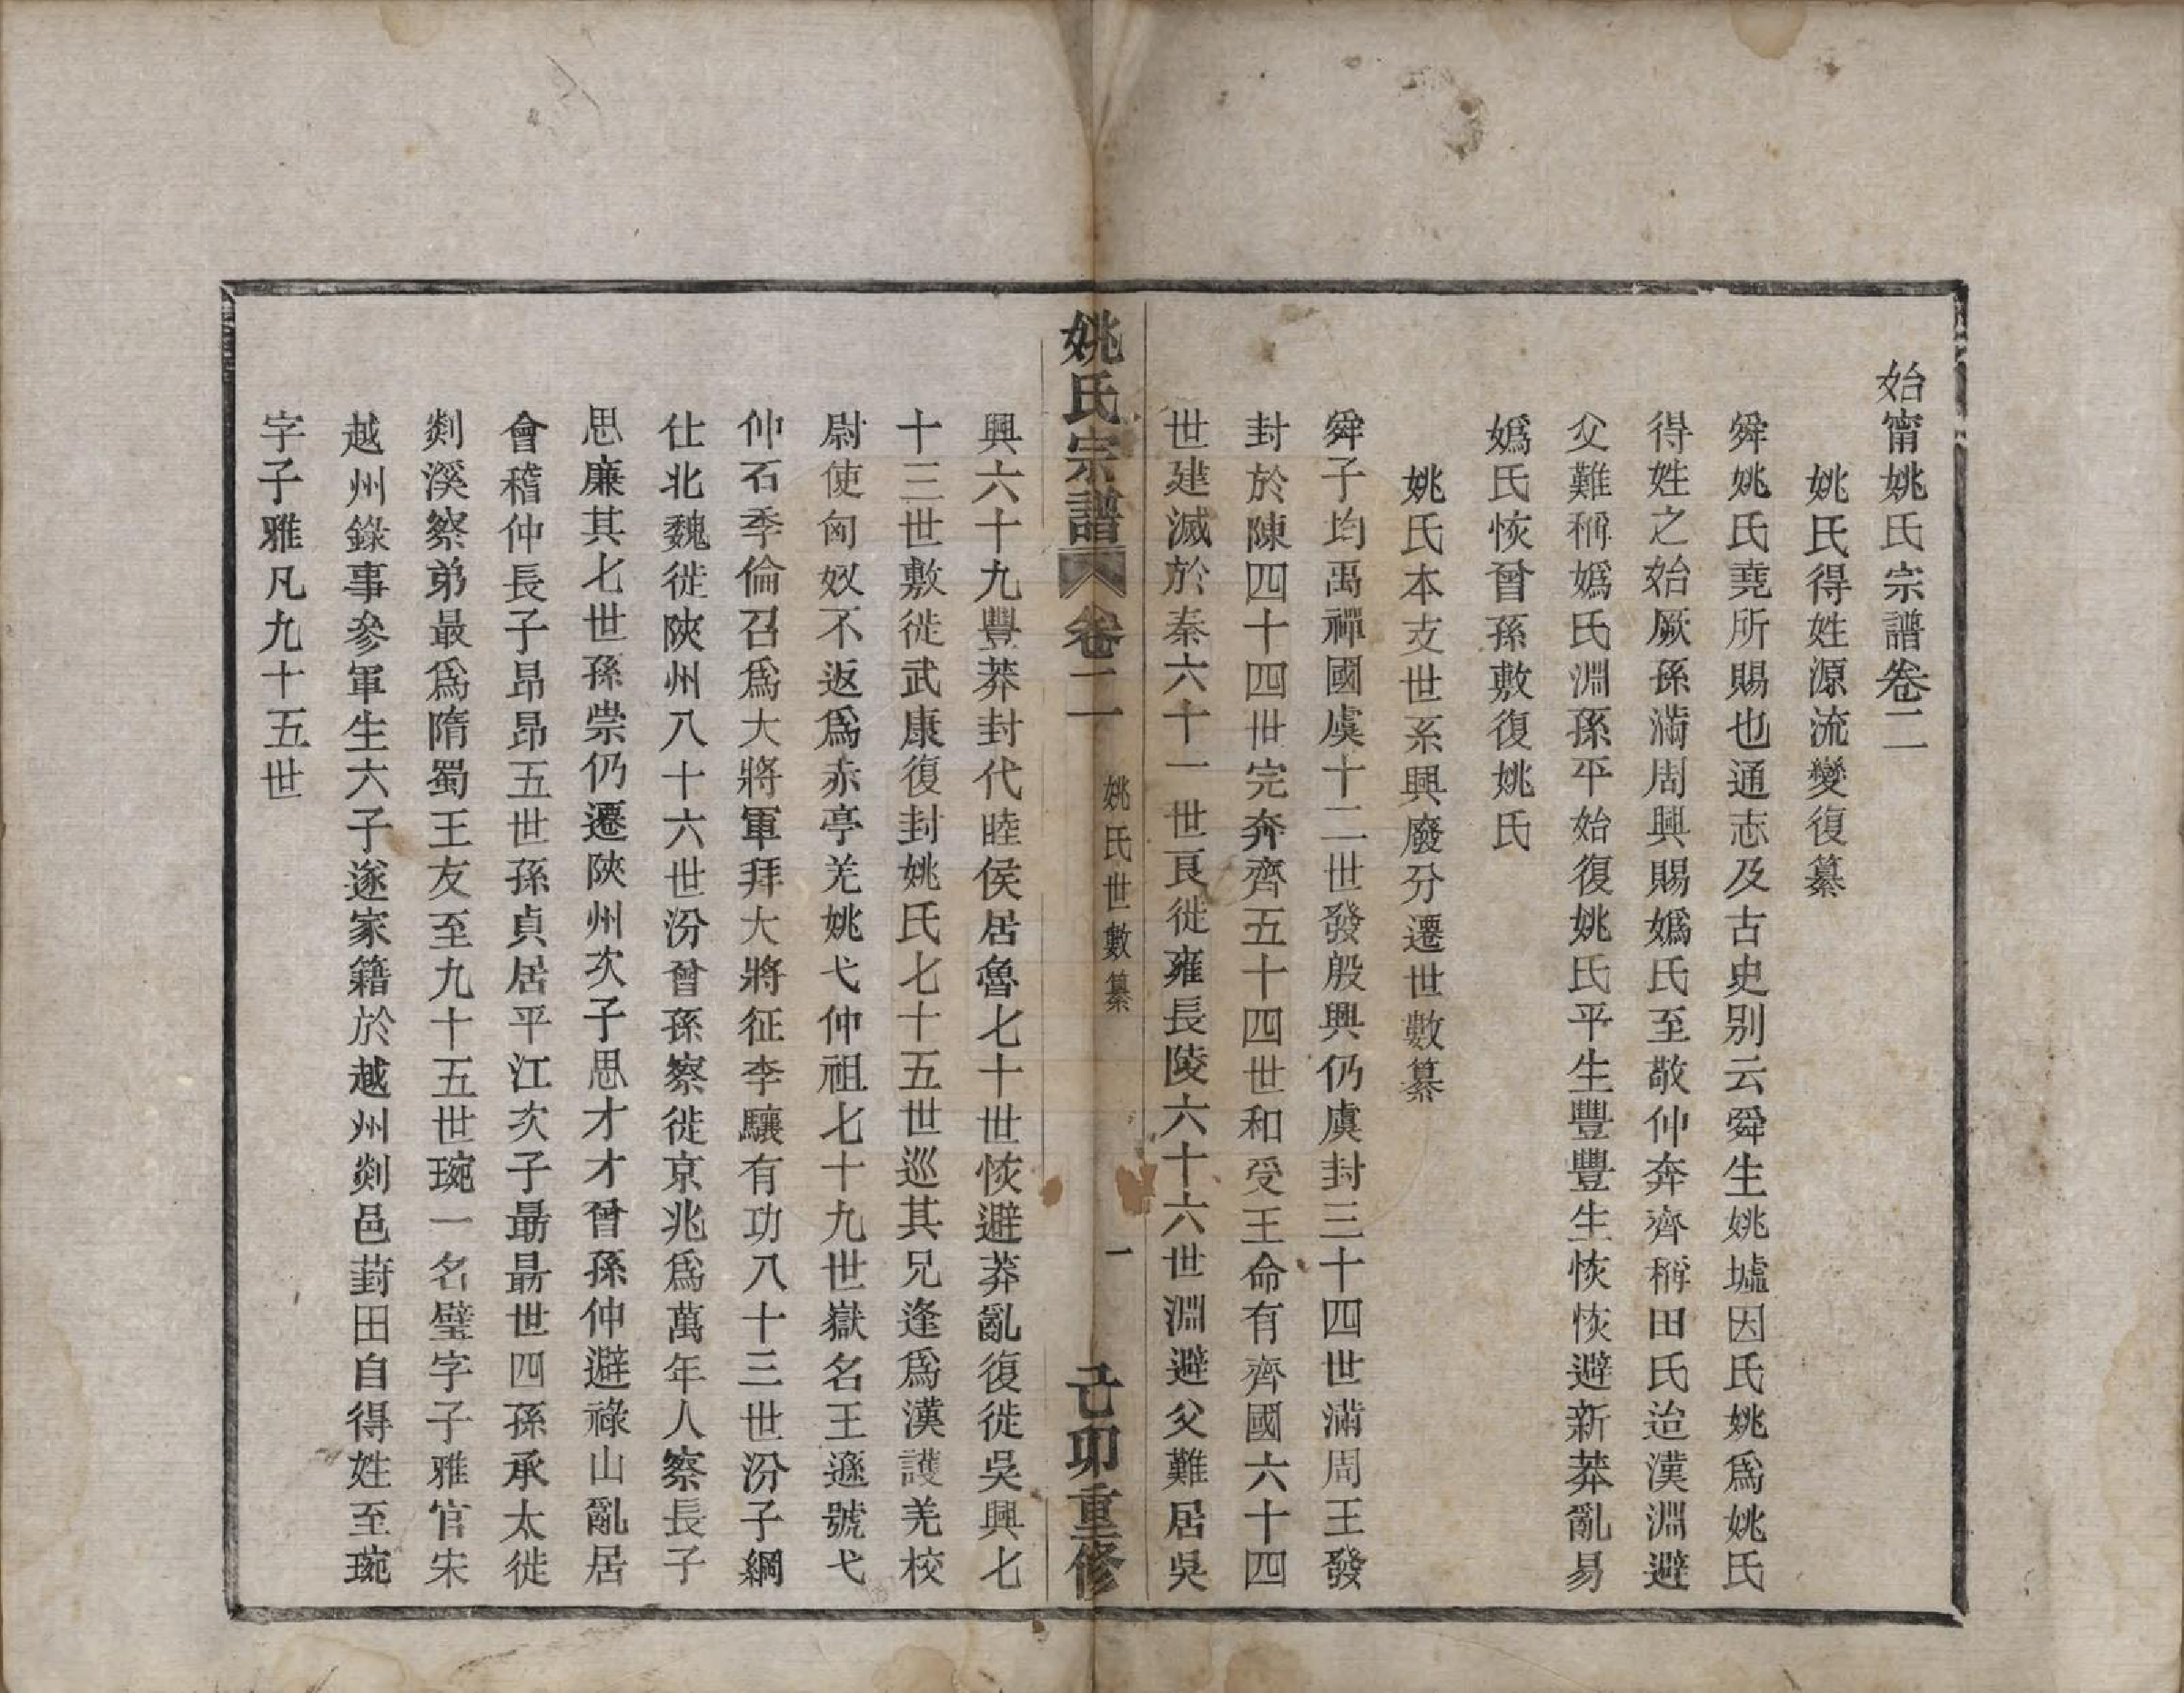 始甯姚氏宗譜卷二
姚氏得姓源流變復纂
舜姚氏堯所賜也通志及古史别云舜生姚墟因氏姚爲姚氏
得姓之始厥孫滿周興賜嬀氏至敬仲奔齊稱田氏迨漢淵避
父難稱嬀氏淵孫平始復姚氏平生豐豐生恢恢避新莽亂易
嬀氏恢曾孫敷復姚氏
姚氏本支世系興廢分遷世數纂
舜子均禹禪國虞十二世發殷興仍虞封三十四世滿周王發
封於陳四十四世完奔齊五十四世和受王命有齊國六十四
世建滅於秦六十一世良徙雍長陵六十六世淵避父難居吳
姚氏宗譜 卷二 姚氏世數纂 一 己卯重修
興六十九豐莽封代睦侯居魯七十世恢避莽亂復徙吳興七
十三世敷徙武康復封姚氏七十五世巡其兄逢爲漢護羌校
尉使匈奴不返爲赤亭羌姚弋仲祖七十九世嶽名王遜號弋
仲石季倫召爲大將軍拜大將征李驤有功八十三世汾子綱
仕北魏徙陝州八十六世汾曾孫察徙京兆爲萬年人察長子
思廉其七世孫崇仍遷陝州次子思才才曾孫仲避祿山亂居
會稽仲長子昂昂五世孫貞居平江次子最最世四孫承太徙
剡溪察弟最爲隋蜀王友至九十五世琬一名璧字子雅官宋
越州錄事參軍生六子遂家籍於越州剡邑葑田自得姓至琬
字子雅凡九十五世